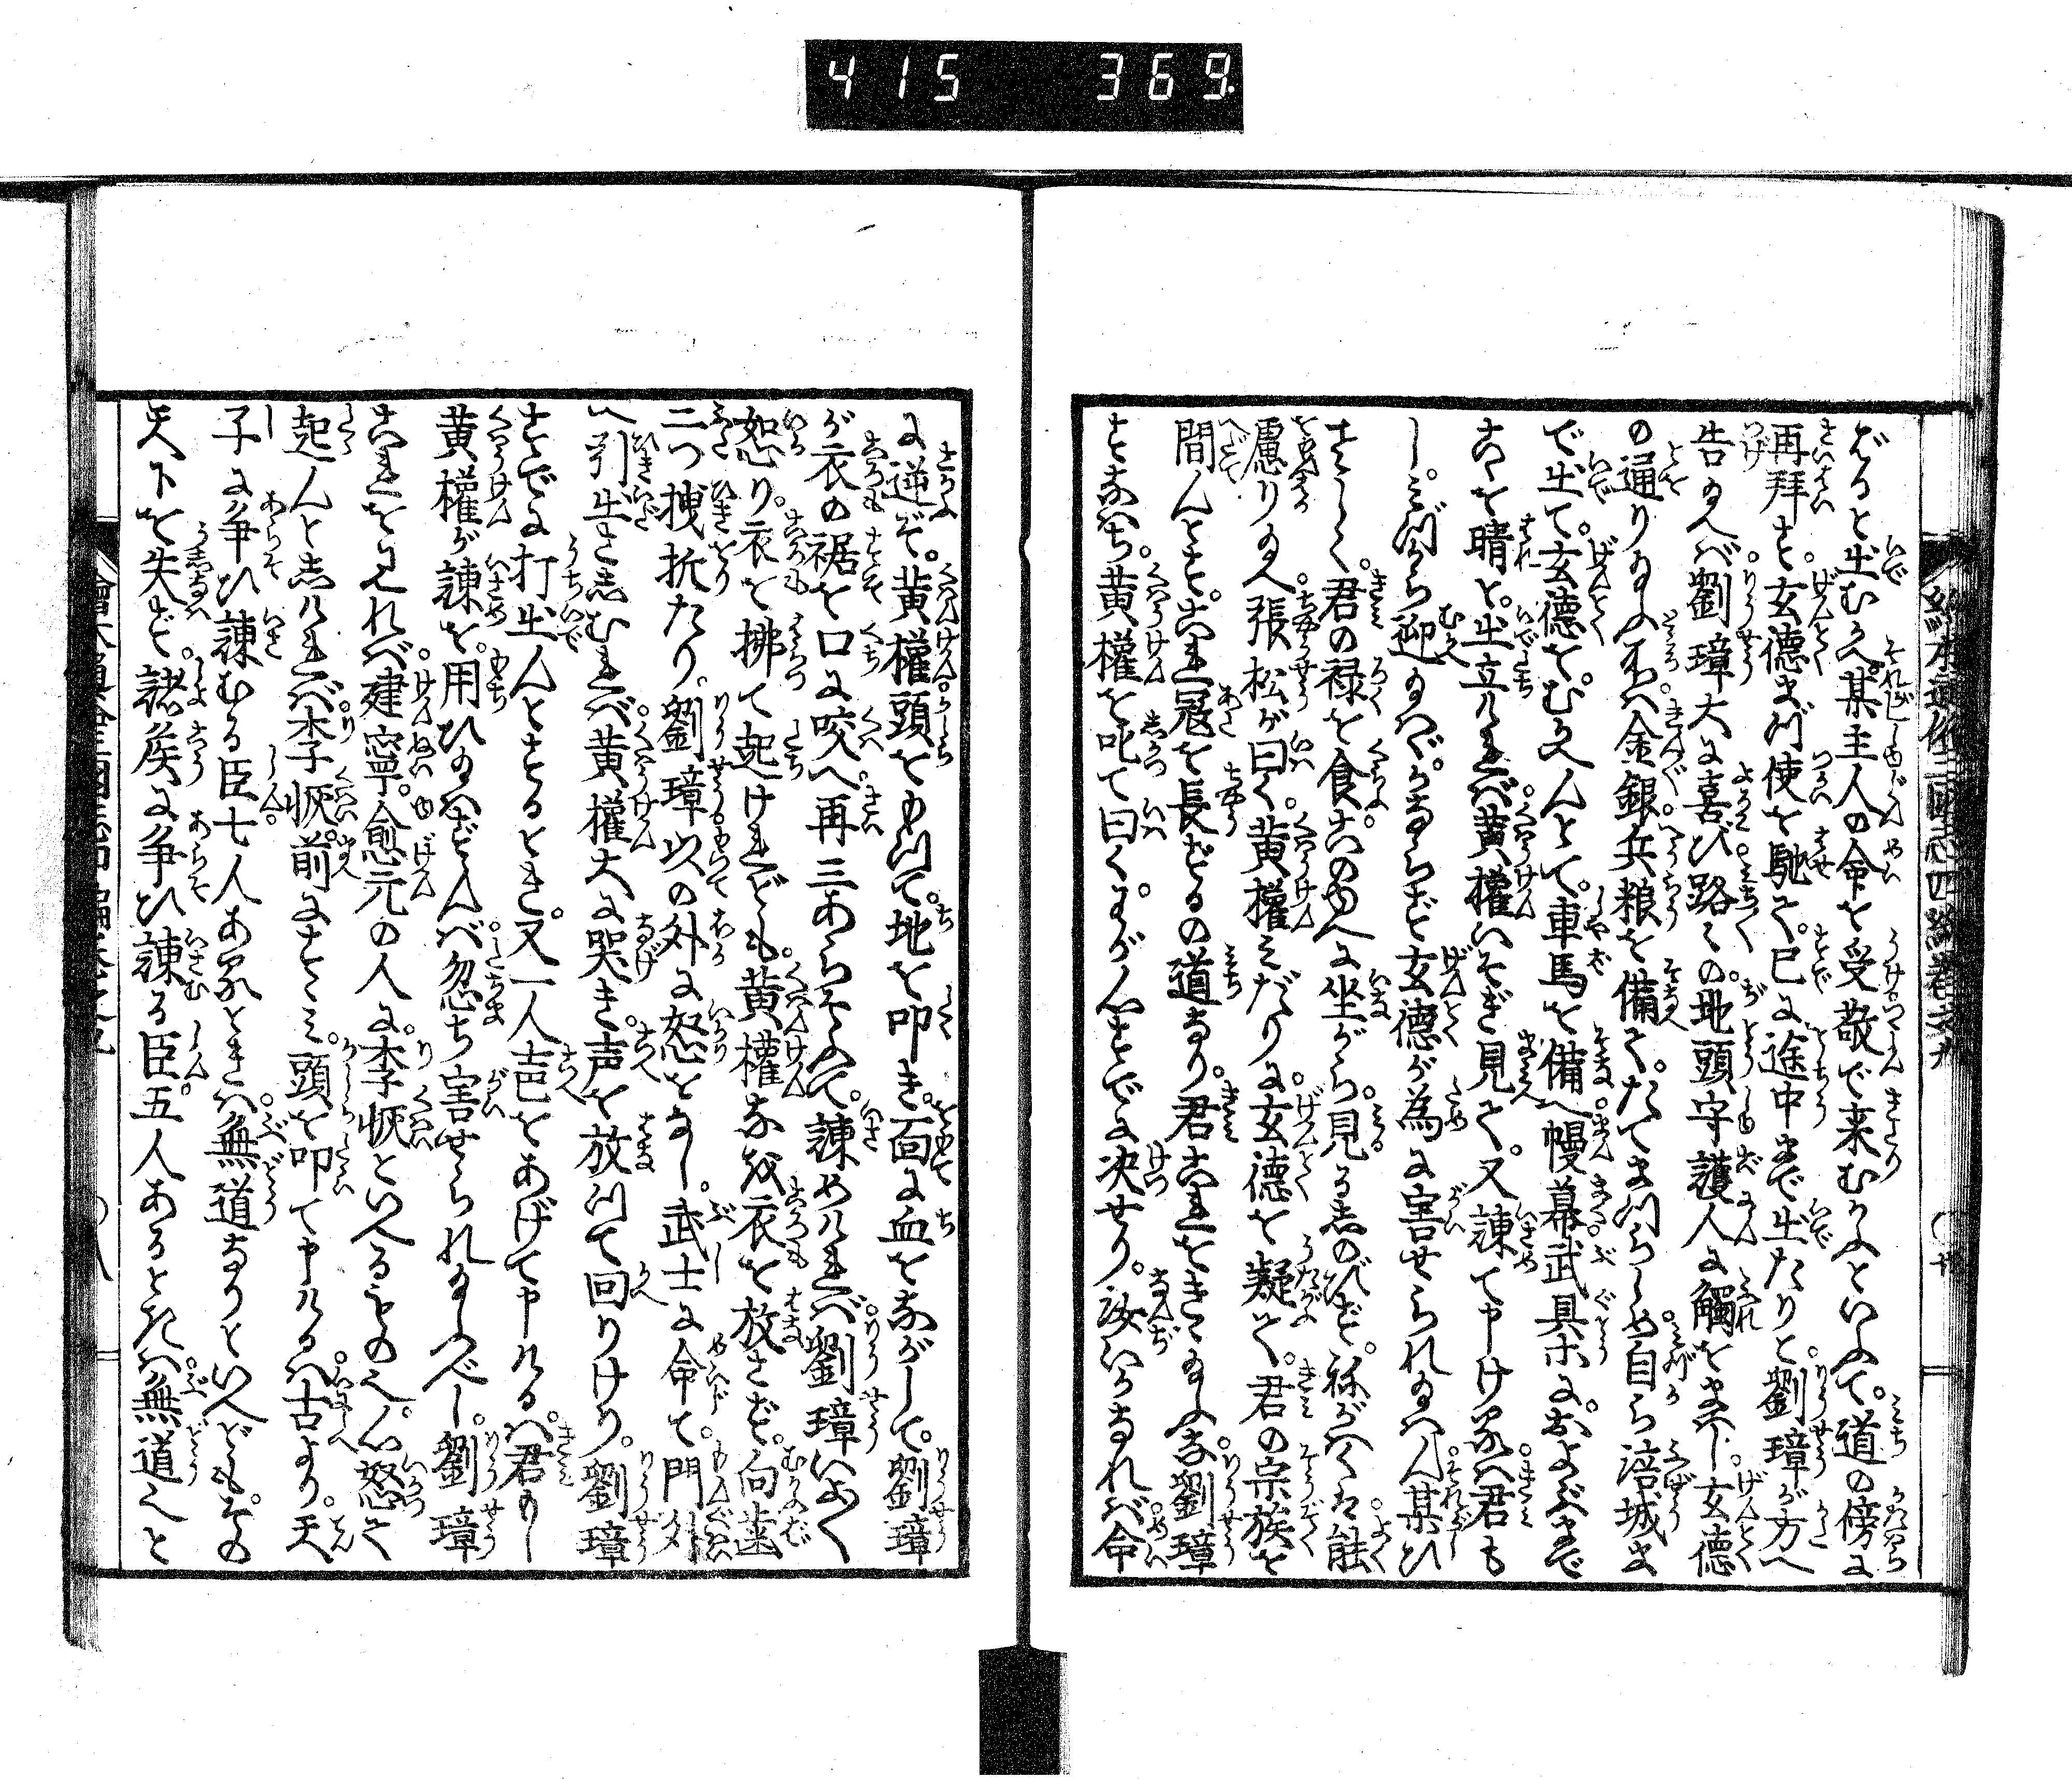 415 369
ばると出むかへ某主人の命を受敬で来むかふといふて。道の傍に
再拝す。玄徳まづ使を馳て。已に途中まで出たりと。劉璋が方へ
告給へば。劉璋大に喜び路々の。地頭守護人に觸をまはし。玄徳
の通り給ふ所へ。金銀兵粮を備へて。たてまつらしめ。自ら涪城ま
で出て。玄徳をむかへんとて。車馬を備へ幔幕武具ホに。およぶまで
こゝを晴と。出立ければ。黄權いそぎ見えて。又諫て申けるハ。君も
し。みづから迎給ハゞ。かならず玄徳が為に害せられ給ハん。某ひ
さしく。君の禄を食。このゆへに坐がら。見るしのびず。祢がハくは能
慮り給へ。張松が曰く。黄權みだりに。玄徳を疑て。君の宗族を
間んとす。これ冦を長ずるの道なり。君これをきゝ給ふな。劉璋
すなはち。黄權を叱て曰く。わが心すでに決せり。汝いかなれば命
に逆ぞ。黄權頭をもつて。地を叩き。面に血をながして。劉璋
が衣の裾を口に咬へ。再三あらそふて。諫めければ。劉璋いよ〱
怒り。衣を拂て起けれども。黄權なを衣を放さず。向歯
二つ拽折たり。劉璋以の外に怒をなし。武士に命て。門外
へ引出さしむれば。黄權大に哭き。声を放つて回りけり。劉璋
すでに打出んとするとき。又一人声をあげて申けるハ。君もし
黄權が諫を。用ひ給ハずんば。忽ち害せられ給ふべし。劉璋
これをみれば。建寧。愈元の人に。李恢といへるもの也。心怒て
起んとしければ。李恢。前にすゝみ。頭を叩て申けるハ。古より。天
子に争ひ諫むる臣七人あるときハ。無道なりといへども。その
天下を失ず。諸侯に争ひ諫る臣。五人あるときハ。無道也と